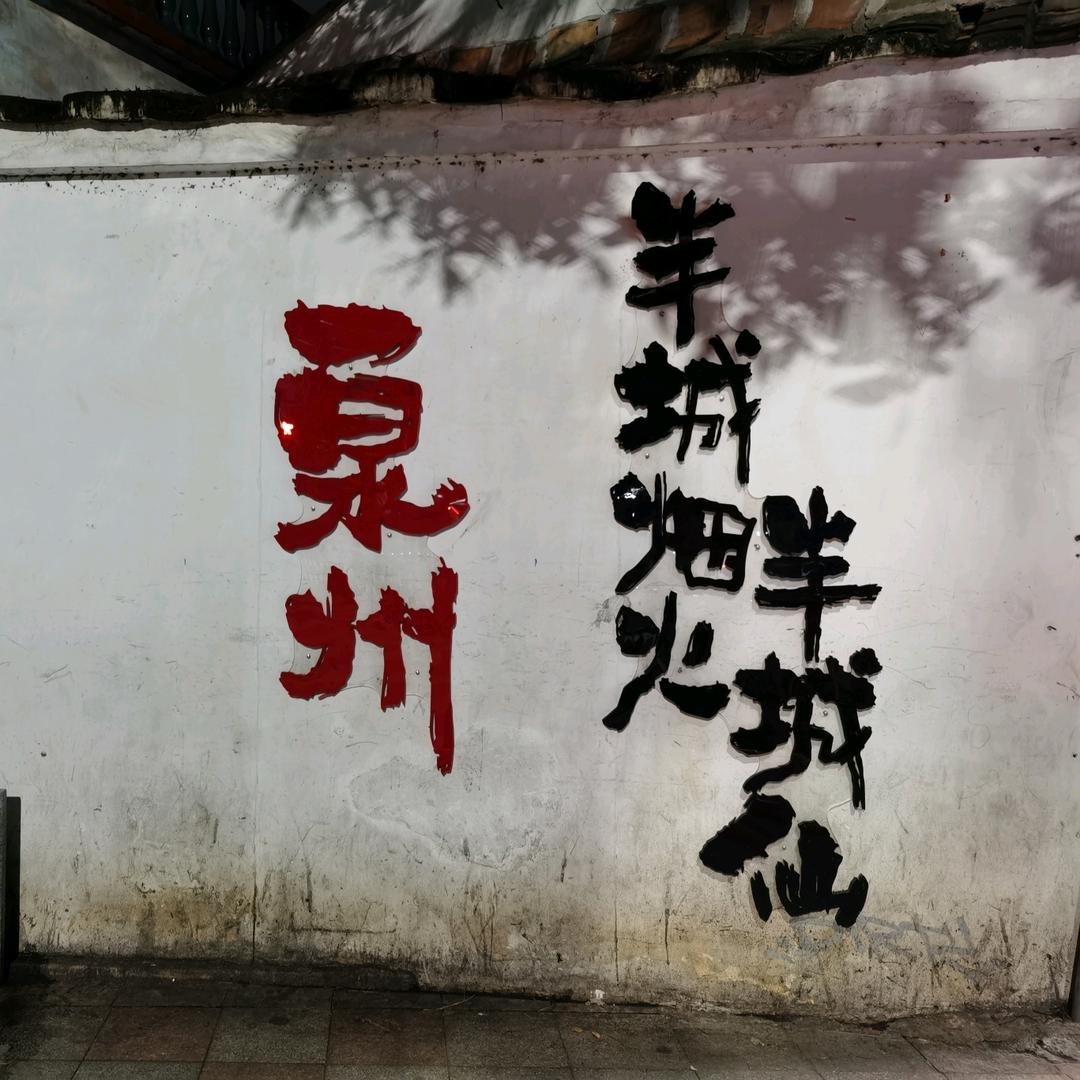 泉州
半城烟火
半城仙